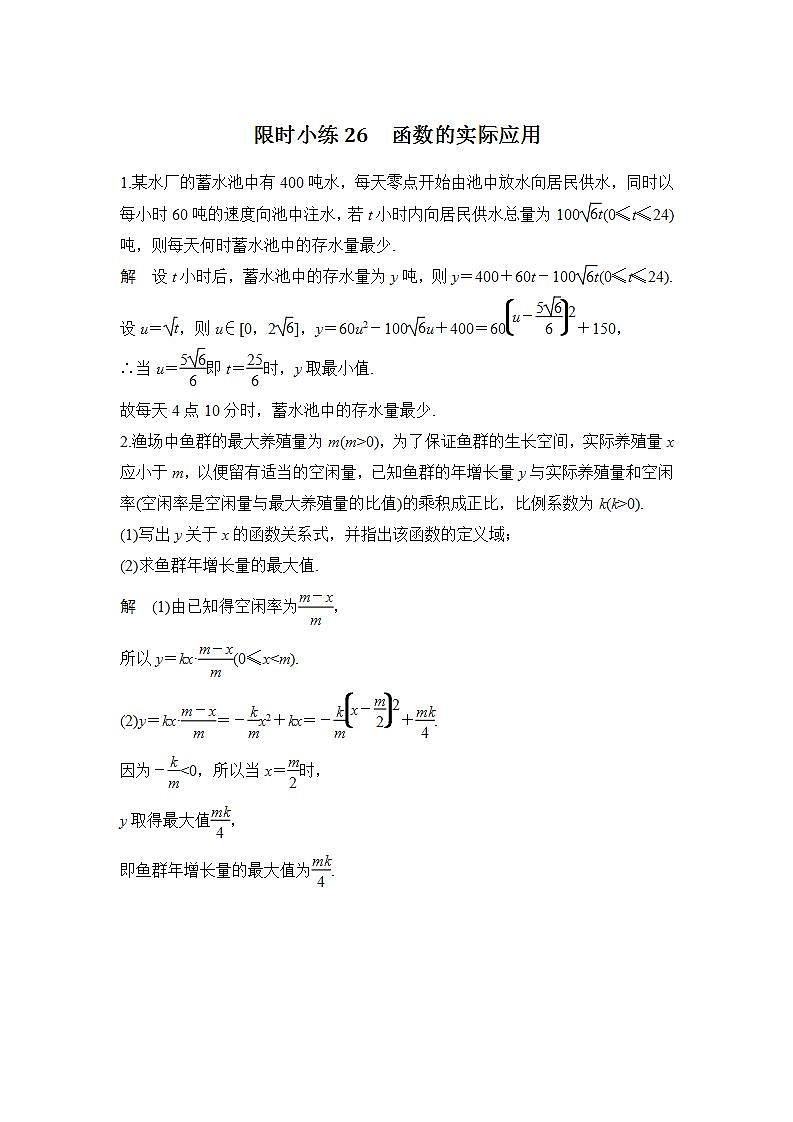 限时小练 26　函数的实际应用
1.某水厂的蓄水池中有 400 吨水，每天零点开始由池中放水向居民供水，同时以
每小时 60 吨的速度向池中注水，若 t 小时内向居民供水总量为 100√6t(0≤t≤24)
吨，则每天何时蓄水池中的存水量最少.
解　设 t 小时后，蓄水池中的存水量为 y 吨，则 y＝400＋60t－100√6t(0≤t≤24).
设 u＝√t，则 u∈[0，2√6]，y＝60u²－100√6u＋400＝60(u－5√6/6)²＋150，
∴当 u＝5√6/6即 t＝25/6时，y 取最小值.
故每天 4 点 10 分时，蓄水池中的存水量最少.
2.渔场中鱼群的最大养殖量为 m(m>0)，为了保证鱼群的生长空间，实际养殖量 x
应小于 m，以便留有适当的空闲量，已知鱼群的年增长量 y 与实际养殖量和空闲
率(空闲率是空闲量与最大养殖量的比值)的乘积成正比，比例系数为 k(k>0).
(1)写出 y 关于 x 的函数关系式，并指出该函数的定义域；
(2)求鱼群年增长量的最大值.
解　(1)由已知得空闲率为(m－x)/m，
所以 y＝kx·(m－x)/m(0≤x<m).
(2)y＝kx·(m－x)/m＝－k/m x²＋kx＝－k/m(x－m/2)²＋mk/4.
因为－k/m<0，所以当 x＝m/2时，
y 取得最大值mk/4，
即鱼群年增长量的最大值为mk/4.